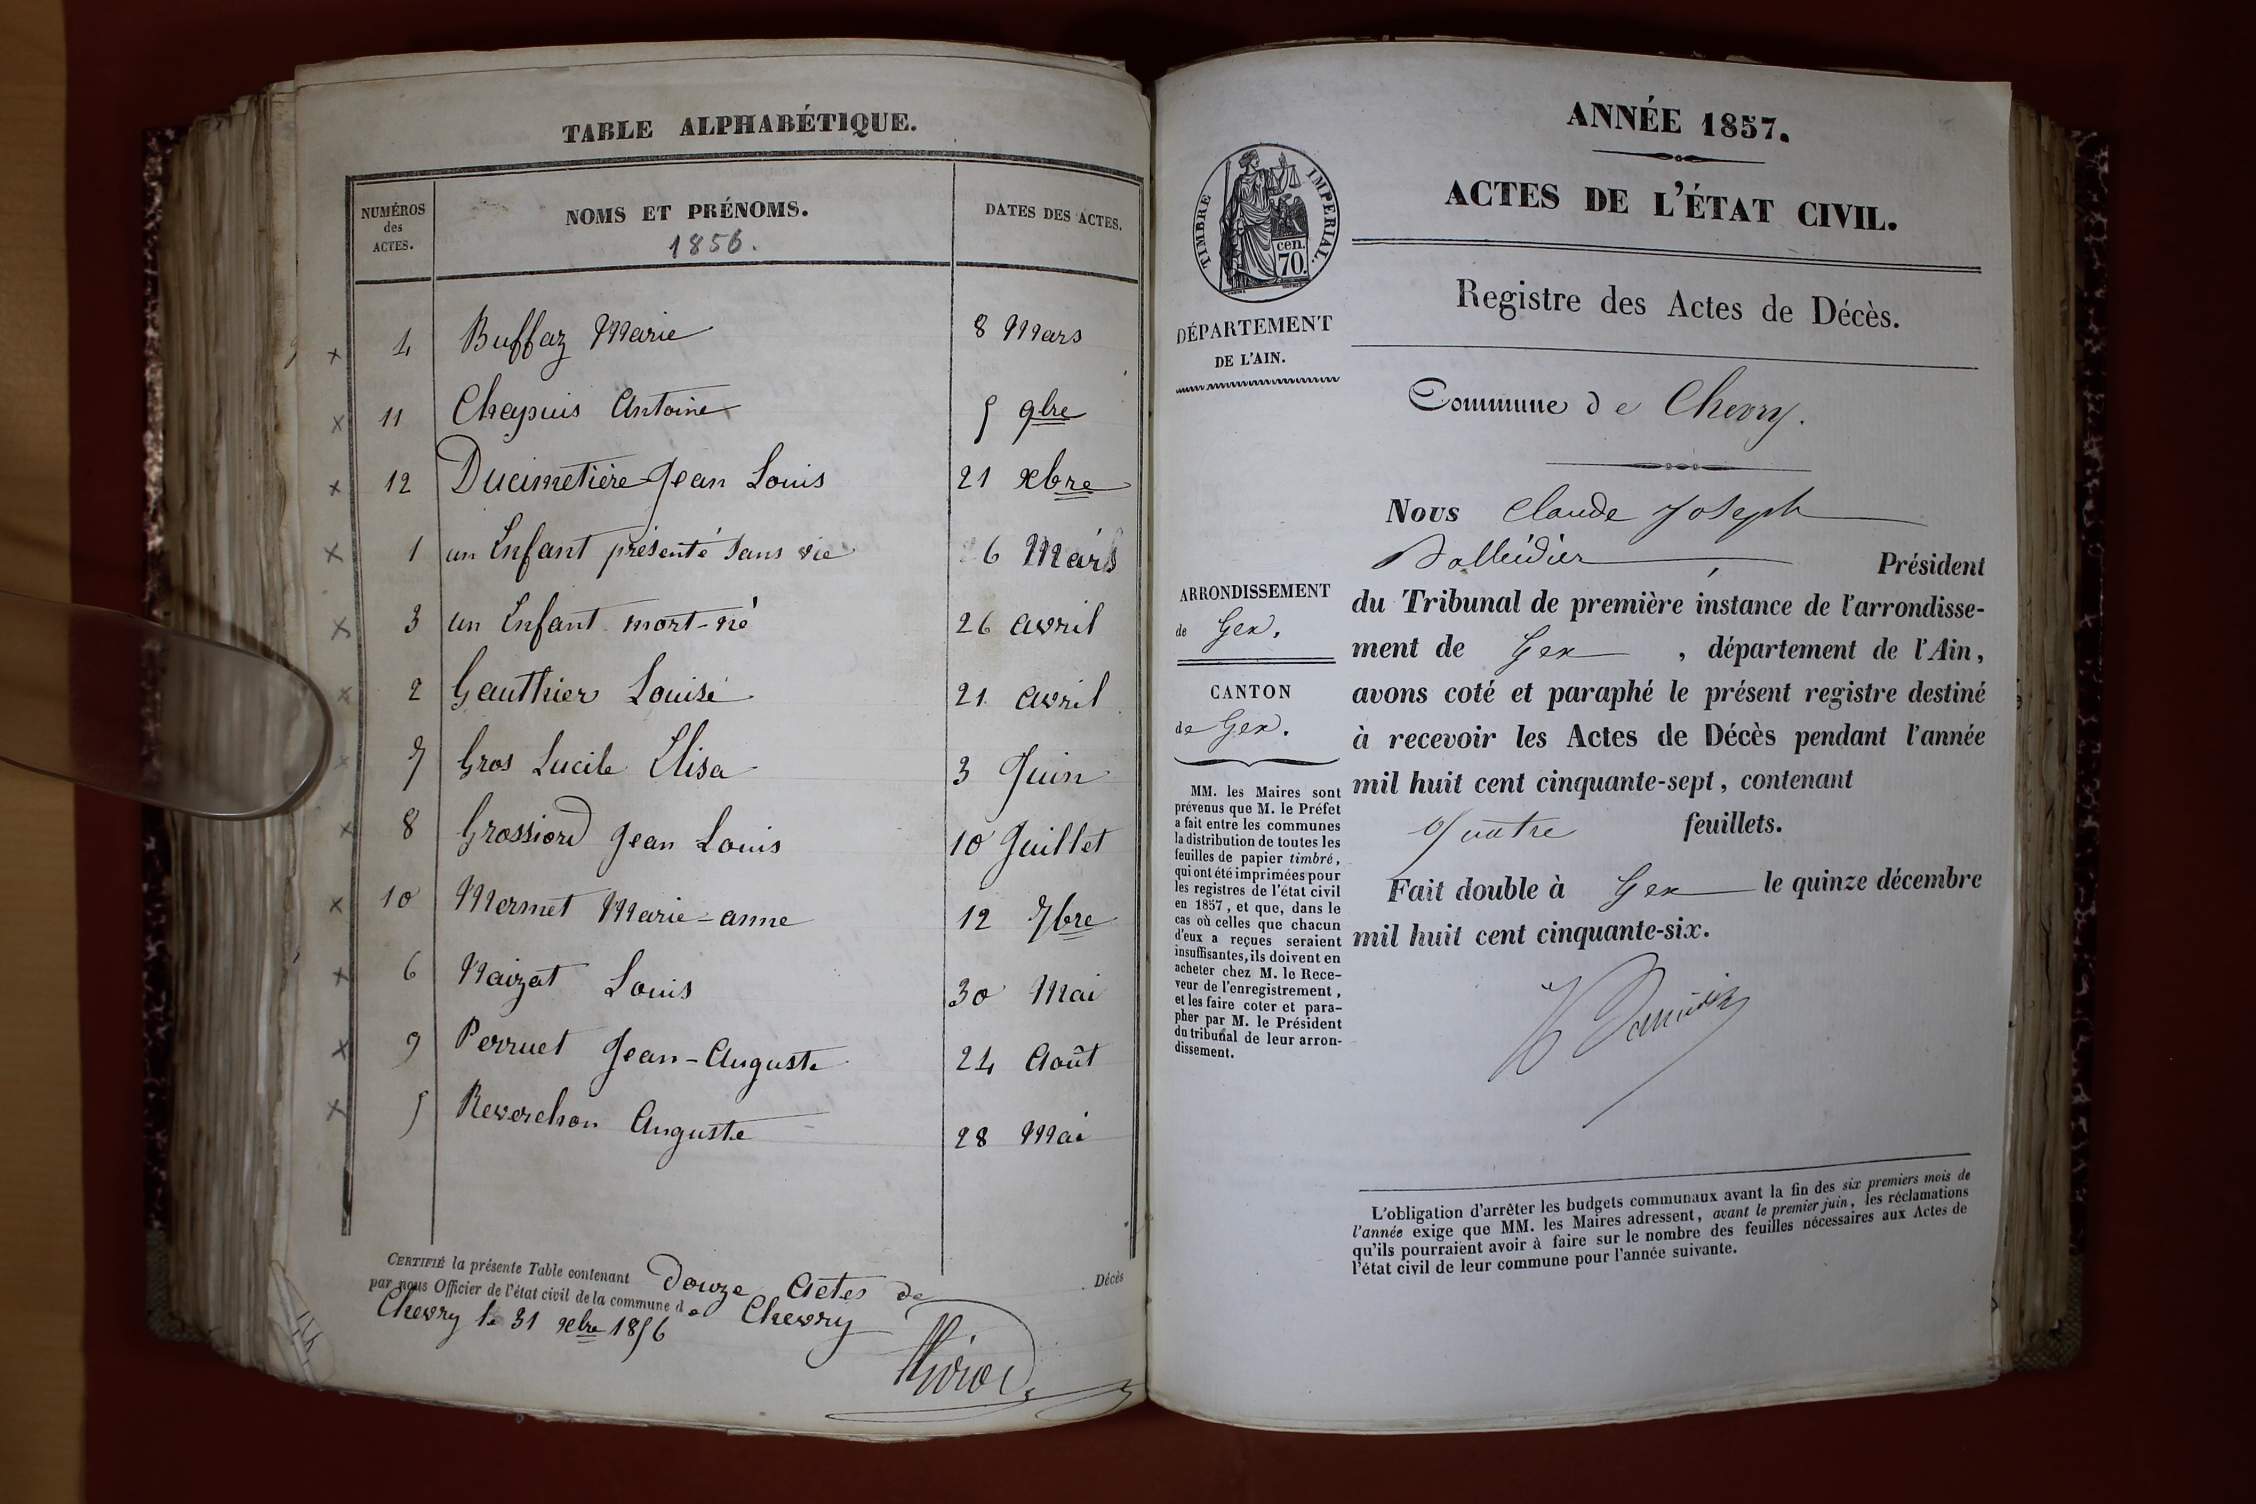 TABLE ALPHABÉTIQUE.
NUMÉROS
des
ACTES.
NOMS ET PRÉNOMS.
1856.
DATES DES ACTES.
4 Buffaz Marie 8 Mars
11 Chapuis Antoine 5 9bre
12 Ducimetière Jean Louis 21 xbre
1 un Enfant présenté sans vie 6 Mars
3 un Enfant mort-né 26 avril
2 Gauthier Louise 21 avril
7 Gros Lucile Elisa 3 Juin
8 Grossiord Jean Louis 10 Juillet
10 Mermet Marie-anne 12 7bre
6 Naizot Louis 30 Mai
9 Perruet Jean-Auguste 24 Août
5 Reverchon Auguste 28 Mai
CERTIFIÉ la présente Table contenant Douze Actes de Décès
par nous Officier de l'état civil de la commune de Chevry
Chevry le 31 xbre 1856
ANNÉE 1857.
ACTES DE L'ÉTAT CIVIL.
TIMBRE IMPERIAL.
cen.
70.
Registre des Actes de Décès.
DÉPARTEMENT
DE L'AIN.
Commune de Chevry.
Nous Claude Joseph
Président
du Tribunal de première instance de l'arrondisse-
ment de Gex, département de l'Ain,
avons coté et paraphé le présent registre destiné
à recevoir les Actes de Décès pendant l'année
mil huit cent cinquante-sept, contenant
quatre feuillets.
Fait double à Gex le quinze décembre
mil huit cent cinquante-six.
ARRONDISSEMENT
de Gex.
CANTON
de Gex.
MM. les Maires sont
prévenus que M. le Préfet
a fait entre les communes
la distribution de toutes les
feuilles de papier timbré,
qui ont été imprimées pour
les registres de l'état civil
en 1857, et que, dans le
cas où celles que chacun
d'eux a reçues seraient
insuffisantes, ils doivent en
acheter chez M. le Rece-
veur de l'enregistrement,
et les faire coter et para-
pher par M. le Président
du tribunal de leur arron-
dissement.
L'obligation d'arrêter les budgets communaux avant la fin des six premiers mois de
l'année exige que MM. les Maires adressent, avant le premier juin, les réclamations
qu'ils pourraient avoir à faire sur le nombre des feuilles nécessaires aux Actes de
l'état civil de leur commune pour l'année suivante.